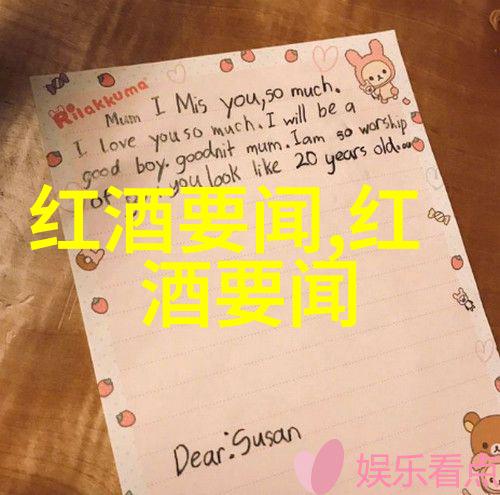 Rilakkuma
Mum I Mis you,so much.
I love you so much. I will be a
good boy. goodnit mum. Iam so worship
of you you look like 20 years old...
红酒要闻,红
酒要闻
Dear:Susan
娱乐看点